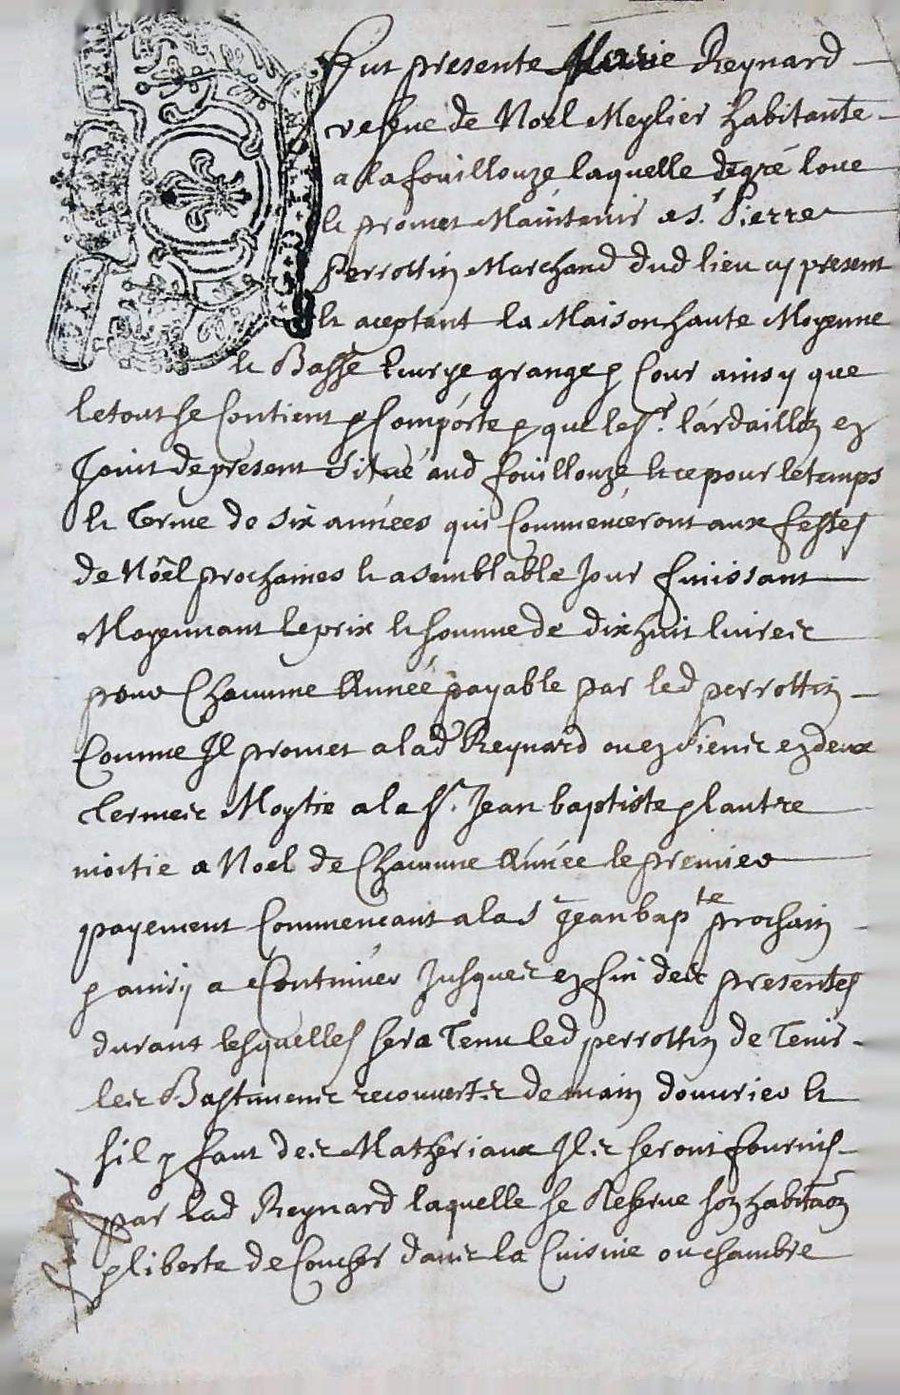 Fut presente Marie Reynard
vefve de Noel Meylier habitante
a la fouillouze laquelle degré loue
& promet Maintenir a Sr. Pierre
Perrottin Marchand dud lieu cy present
& aceptant la Maison haute Moyenne
& Basse Ecurye grange & Cour ainsy que
le tout se Contient & Comporte & que le Sr. lardaillon en
Jouit de present situé aud fouillouze & ce pour le temps
& Terme de six années qui Commenceront aux festes
de Noêl prochaines & a semblable Jour finissant
Moyennant le prix & somme de dix huit livres
pour Chacune Année payable par led perrottin
Comme Il promet a lad Reynard ou es siens en deux
Termes Moytie a la St. Jean baptiste & lautre
moitie a Noel de Chacune Année le premier
payement Commencant a la S Jean bapte prochain
& ainsy a Continuer Jusques en fin des presentes
durant lesquelles sera Tenu led perrottin de Tenir
les Bastimens recouverts de main douvrier &
sil y faut des Matheriaux Ils seront fournis
par lad Reynard laquelle se Reserve son habitaon
& liberte de Coucher dans la Cuisine ou chambre